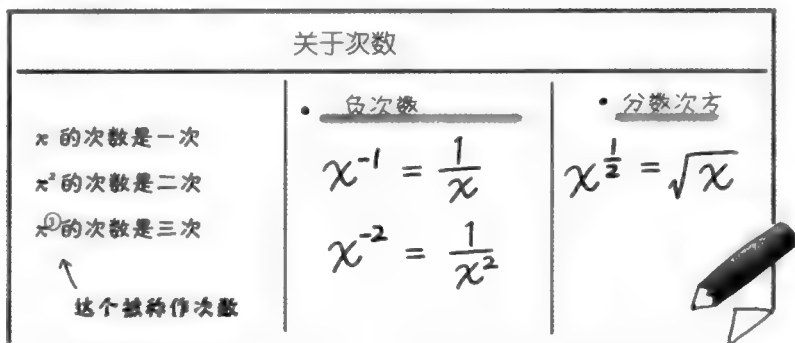 关于次数
x 的次数是一次
x² 的次数是二次
x³ 的次数是三次
这个被称作次数
• 负次数
x⁻¹ = 1/x
x⁻² = 1/x²
• 分数次方
x^{1/2} = √x